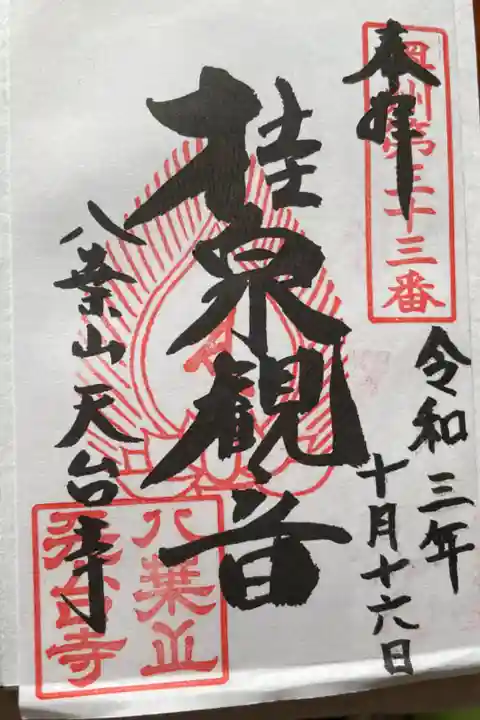 奉拝
奥州第三十三番
令和三年
十月十六日
桂泉観音
八葉山天台寺
八葉山
天台寺